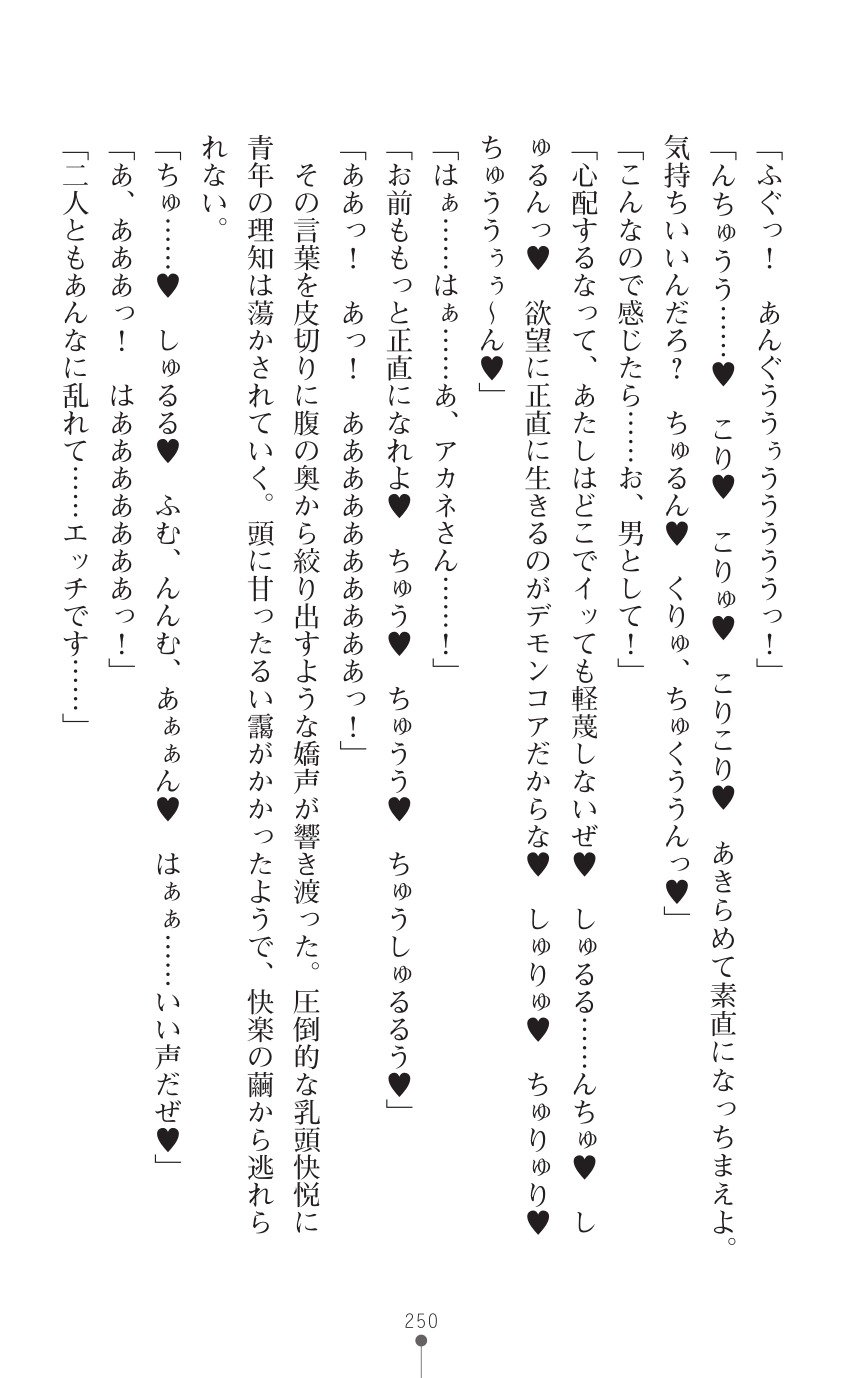 「ふぐっ！　あんぐううぅうううううっ！」
「んちゅうう……♥　こり♥　こりゅ♥　こりこり♥　あきらめて素直になっちまえよ。
気持ちいいんだろ？　ちゅるん♥　くりゅ、ちゅくううんっ♥」
「こんなので感じたら……お、男として！」
「心配するなって、あたしはどこでイッても軽蔑しないぜ♥　しゅるる……んちゅ♥　し
ゅるんっ♥　欲望に正直に生きるのがデモンコアだからな♥　しゅりゅ♥　ちゅりゅり♥
ちゅううぅぅ～ん♥」
「はぁ……はぁ……あ、アカネさん……！」
「お前ももっと正直になれよ♥　ちゅう♥　ちゅうう♥　ちゅうしゅるるう♥」
「ああっ！　あっ！　ああああああああああっ！」
　その言葉を皮切りに腹の奥から絞り出すような嬌声が響き渡った。圧倒的な乳頭快悦に
青年の理知は蕩かされていく。頭に甘ったるい靄がかかったようで、快楽の繭から逃れら
れない。
「ちゅ……♥　しゅるる♥　ふむ、んんむ、あぁぁん♥　はぁぁ……いい声だぜ♥」
「あ、あああっ！　はあああああああっ！」
「二人ともあんなに乱れて……エッチです……」
250